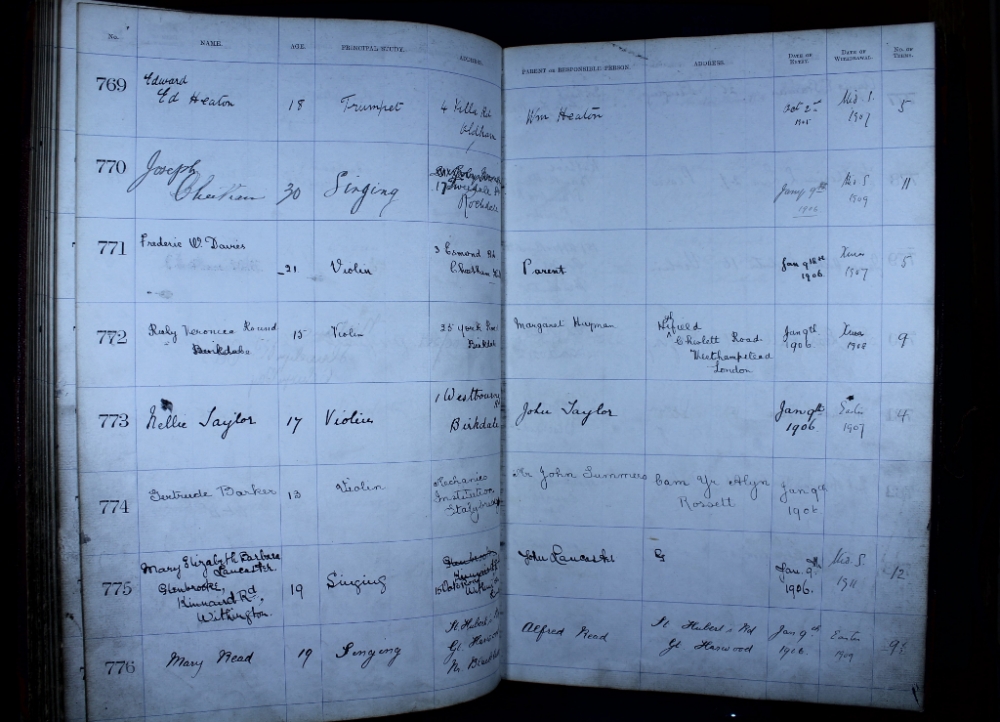 No. NAME. AGE. PRINCIPAL STUDY. ADDRESS. PARENT OR RESPONSIBLE PERSON. ADDRESS. DATE OF ENTRY. DATE OF WITHDRAWAL. NO. OF TERMS.
769 Edward
Ed Heaton 18 Trumpet 4 Villa Rd Wm Heaton Oct 2nd Mid S. 5
Oldham 1905 1907
770 Joseph
Cheetham 30 Singing 17 Jany 9th Mid S 11
Rochdale 1906 1909
771 Frederic W. Davies 3 Esmond Rd
21 Violin Cheetham Hill Parent Jan 9th 1906 Xmas 1907 5
772 Ruby Veronica Round 15 Violin 25 York Margaret Hyman Jan 9th 1906 Xmas 1908 9
Birkdale Birkdale Road
London
773 Nellie Taylor 17 Violin 1 Westbourne Rd John Taylor Jan 9th Easter 4
Birkdale 1906. 1907
774 Gertrude Barker 13 Violin Mechanics Mr John Summers Cam Yr Alyn Jan 9th
Institution Rossett 1906
Stalybridge
775 Mary Elizabeth Barbara
Lancaster. John Lancaster
Glenbrooke, 19 Singing Jan. 9th Mid S. 12
Kinnaird Rd, 1906. 1911
Withington.
776 Mary Read 19 Singing St Huberts Alfred Read St Huberts Rd Jan 9th Easter 9
Gt Harwood Gt Harwood 1906. 1909
Nr Blackburn